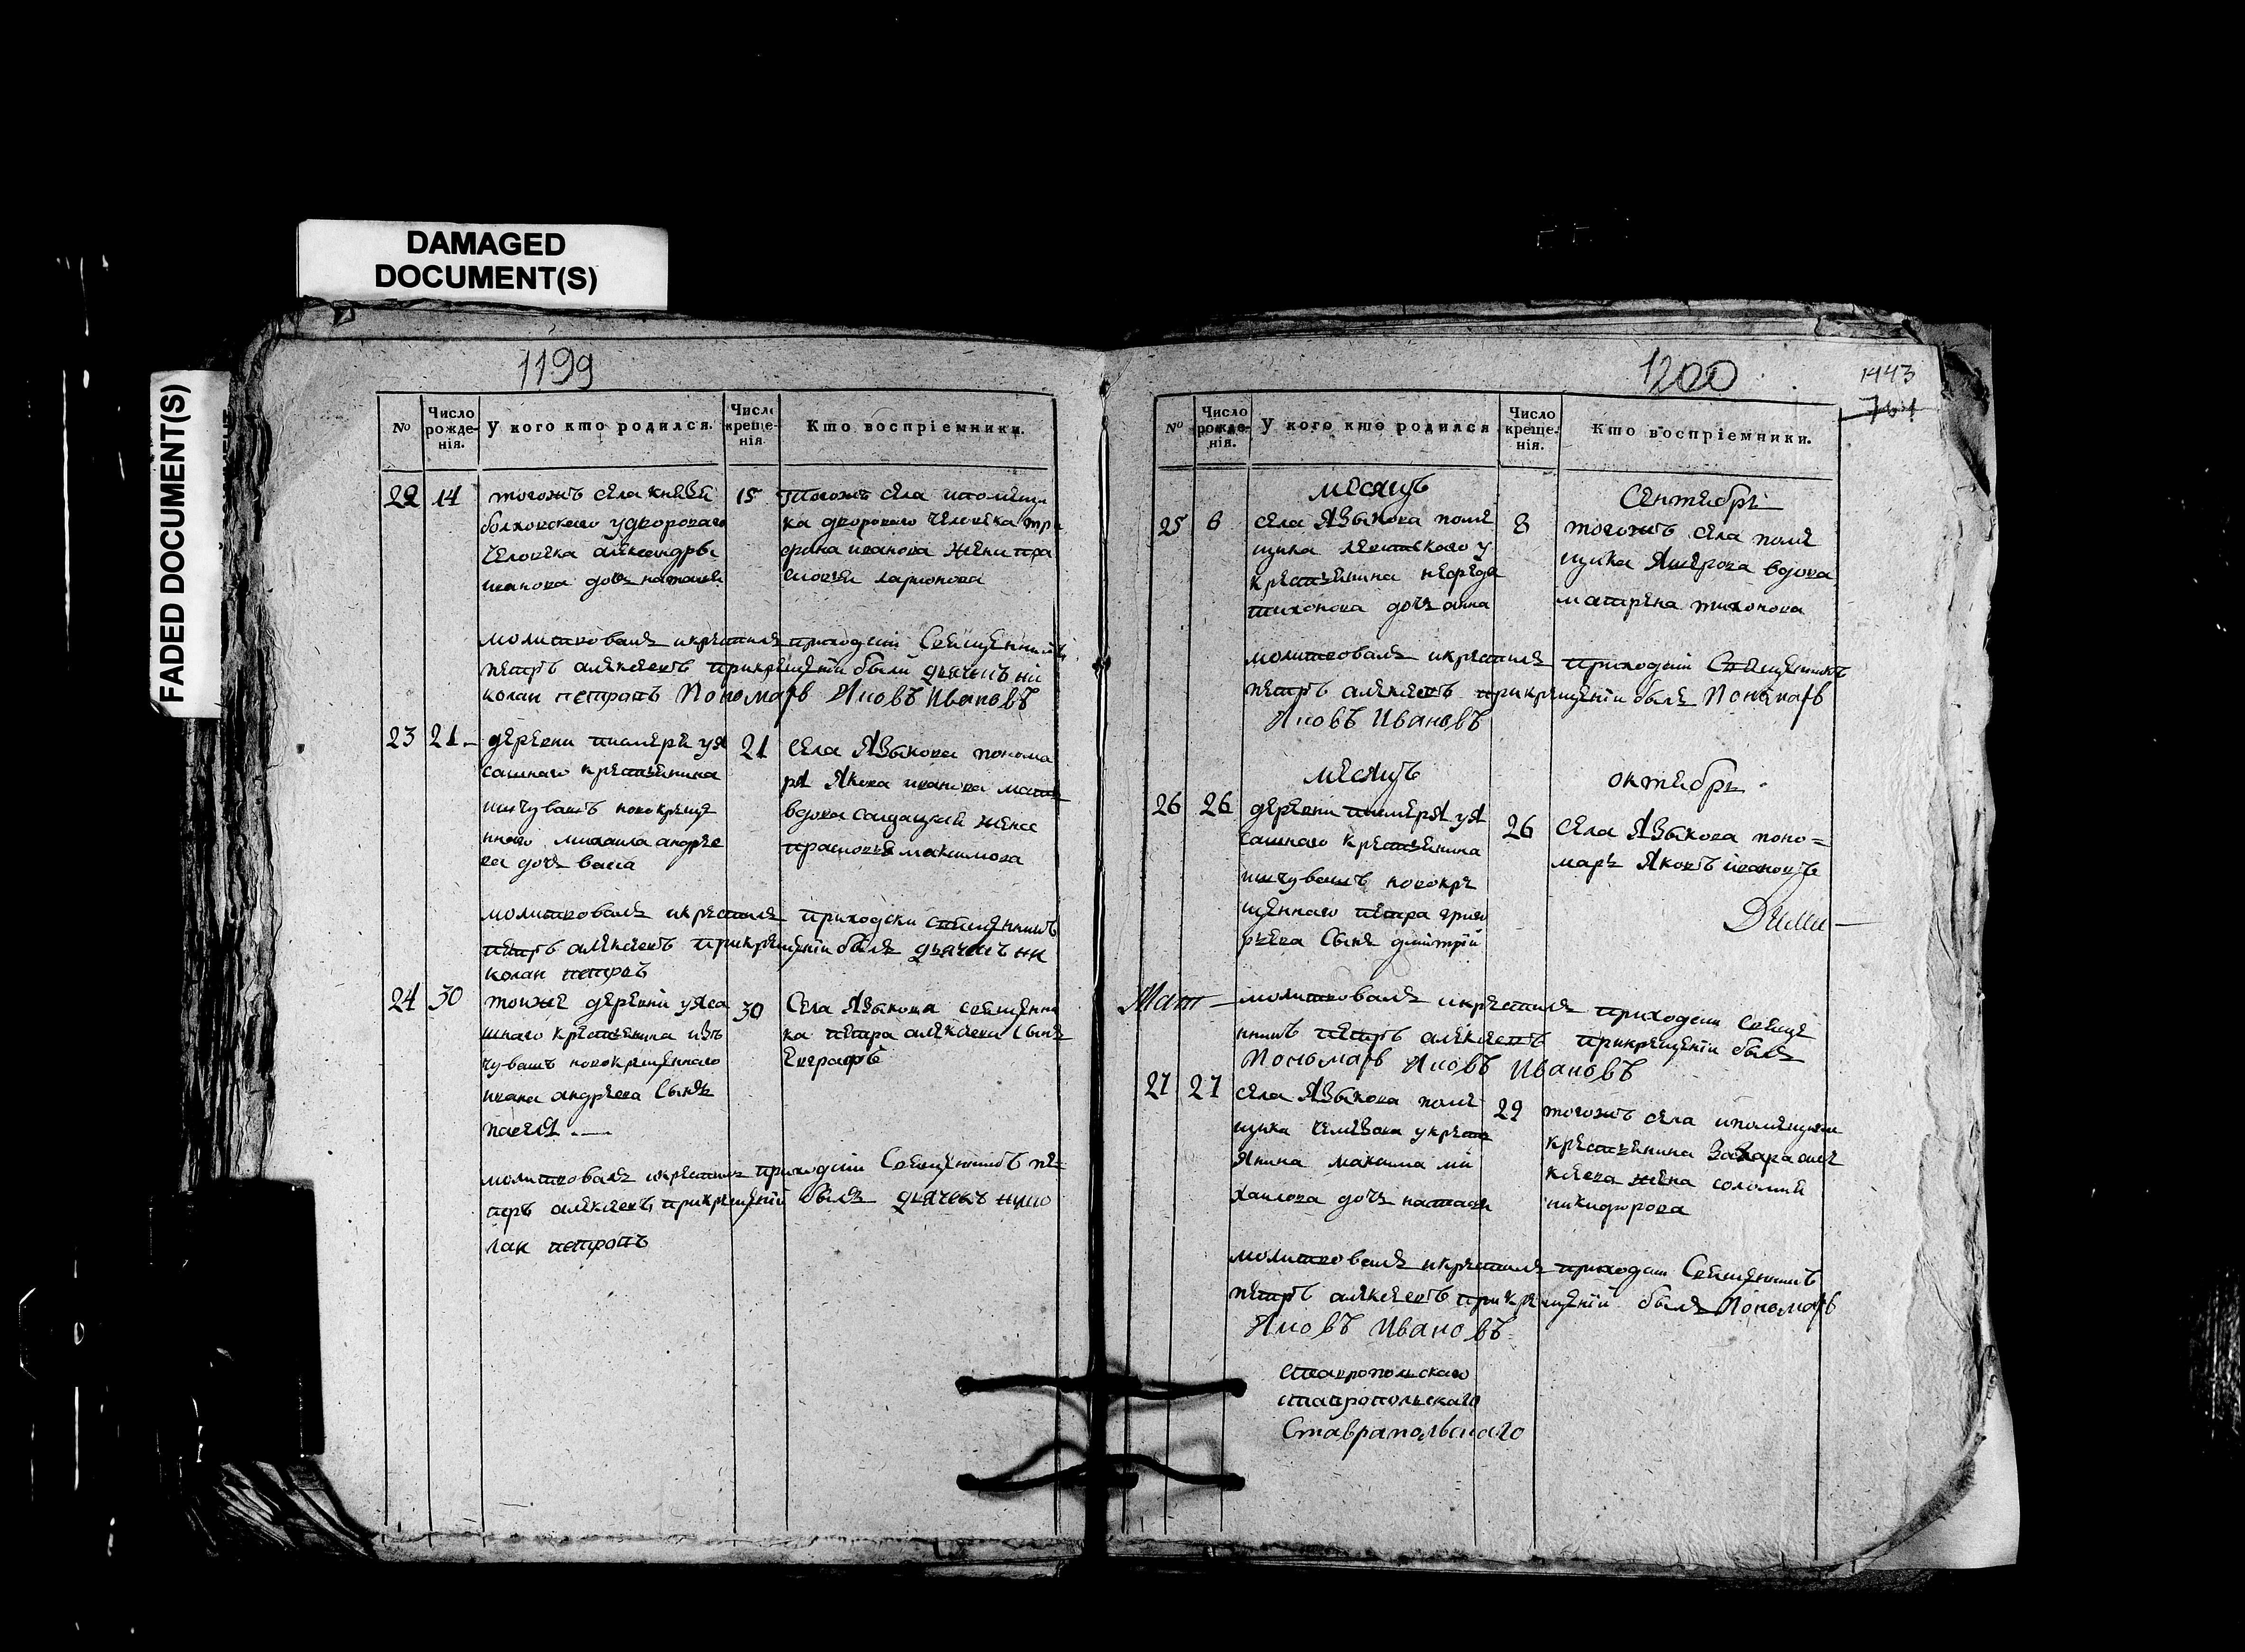 DAMAGED
DOCUMENT(S)
FADED DOCUMENT(S)
1199
№
Число рожде-нія.
У кого кто родился.
Число креще-нія.
Кто воспріемники.
22 14
тогожъ села князя
болховскаго удворового
человека александры
иванова дочь наталья
15
Тогожъ села ипомещи
ка дворового человека
иванова жены пра
сковьи ларионова
молитвовалъ икрестилъ приходскій Священникъ
петръ алексеевъ прикрещеніи были дьячекъ ни
колаи петровъ Пономарь Яковъ Ивановъ
23 21
деревни уя
сашнаго крестьянина
исчувашъ новокреще
ннаго михаила андрее
ва дочь васса
21
Села Языкова понома
ря Якова иванова мать
вдова салдацкая жена
прасковья максимова
молитвовалъ икрестилъ приходски священникъ
петръ алексеевъ прикрещеніи былъ дьячекъ ни
колаи петровъ
24 30
тоиже деревни уяса
шнаго крестьянина изъ
чувашъ новокрещеннаго
ивана андреева Сынъ
30
Села Языкова священни
ка петра алексеева Сынъ
Евграфъ
молитвовалъ икрестилъ приходскіи Священникъ пе=
тръ алексеевъ прикрещеніи былъ дьячекъ нико
лаи петровъ
1200
1443
№
Число рожде-нія.
У кого кто родился
Число креще-нія.
Кто воспріемники.
месяцъ Сентябрь
25 6
села Языкова поме
щика у
крестьянина нефеда
тихонова дочь анна
8
тогожъ села поме
щика вдова
матрена тихонова
молитвовалъ икрестилъ приходскіи Священникъ
петръ алексеевъ прикрещеніи былъ Пономарь
Яковъ Ивановъ
месяцъ октябрь
26 26
деревни уя
сашнаго крестьянина
исчувашъ новокре
щеннаго петра григо
рьева Сынъ дмитрій
26
Села Языкова поно=
марь Яковъ ивановъ
молитвовалъ икрестилъ приходскіи Свяще
нникъ петръ алексеевъ прикрещеніи былъ
Пономарь Яковъ Ивановъ
27 27
села Языкова поме
щика укресть
янина максима ми
хаилова дочь настасья
29
тогожъ села ипомещика
крестьянина Захара але
ксеева жена соломия
никифорова
молитвовалъ икрестилъ приходскіи Священникъ
петръ алексеевъ прикрещеніи былъ Пономарь
Яковъ Ивановъ
Ставропольскаго
ставропольскаго
Ставрапольскаго